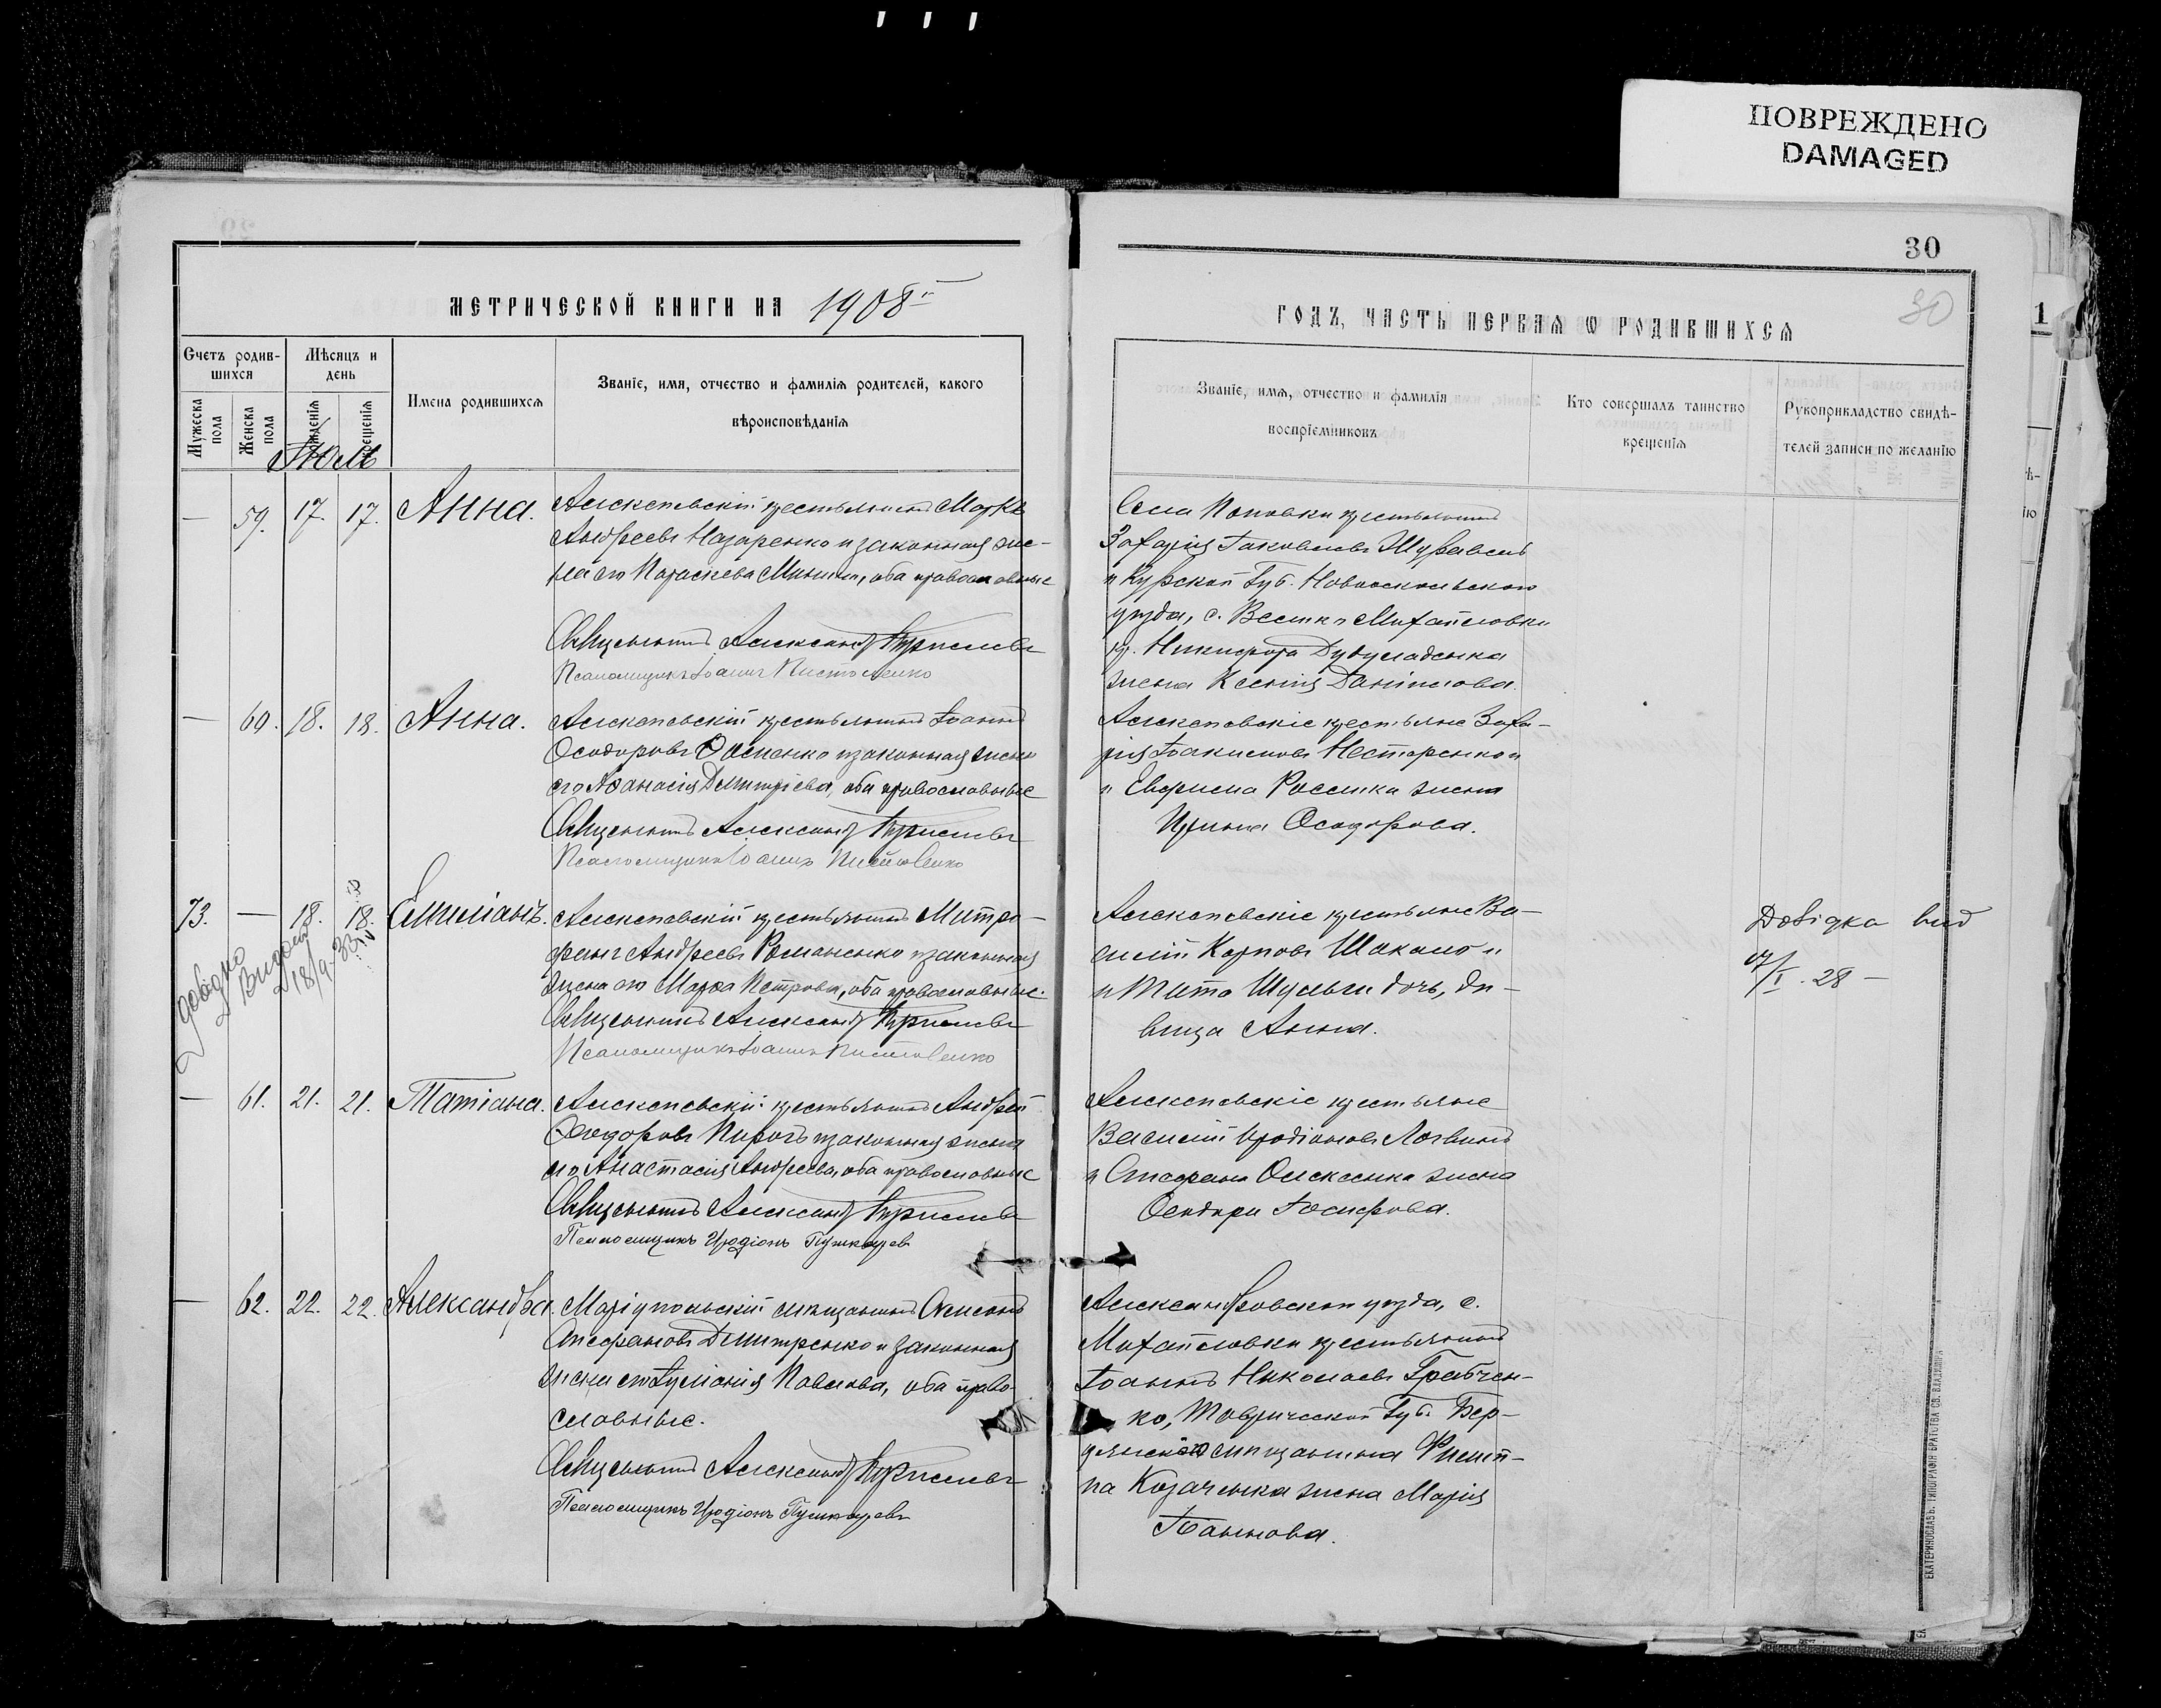 ПОВРЕЖДЕНО
DAMAGED
30
30
МЕТРИЧЕСКОЙ КНИГИ НА 1908
ГОДЪ, ЧАСТЬ ПЕРВАЯ Ѡ РОДИВШИХСЯ
Счетъ родив-
шихся
Мужеска пола
Женска пола
Мѣсяцъ и
день
рожденія
крещенія
Имена родившихся
Званіе, имя, отчество и фамилія родителей, какого
вѣроисповѣданія
Званіе, имя, отчество и фамилія
воспріемниковъ
Кто совершалъ таинство
крещенія
Рукоприкладство свидѣ-
телей записи по желанію
Іюль
— 59. 17. 17. Анна.
Алексеевскій крестьянинъ Маркъ
Андреевъ Назаренко и законная же-
на его Параскева, оба православные
Священникъ Александръ
Псаломщикъ Іоаннъ
Села Поповки крестьянинъ
Захарія Іаковлевъ Журавель
и Курской Губ. Новооскольскаго
уезда, с. Михайловки
кр. Никифора
жена Ксенія Даніилова.
— 60. 18. 18. Анна.
Алексеевскій крестьянинъ Іоаннъ
Ѳеодоровъ и законная жена
его Аѳанасія Димитріева, оба православные
Священникъ Александръ
Псаломщикъ Іоаннъ
Алексеевскіе крестьяне Заха-
рія Іоакимовъ Нестеренко
и Ефрема жена
Ирина Ѳеодорова.
73. — 18. 18. Емиліанъ.
Алексеевскій крестьянинъ Митро-
фанъ Андреевъ Романенко и законная
жена его Марѳа Петрова, оба православные.
Священникъ Александръ
Псаломщикъ Іоаннъ
Алексеевскіе крестьяне Ва-
силій Карповъ Шакало
и Тита Шульги дочь, де-
вица Анна.
Довідка вид
17/I. 28 —
довідка
Видана
18/9-33
— 61. 21. 21. Татіана.
Алексеевскій крестьянинъ Андрей
Ѳеодоровъ Пирогъ и законная жена
его Анастасія Андреева, оба православные
Священникъ Александръ
Псаломщикъ Иродіонъ Пушкаревъ
Алексеевскіе крестьяне
Василій Иродіоновъ Логвинъ
и Стефана Олексенка жена
Іосифова.
— 62. 22. 22. Александра.
Маріупольскій мещанинъ Симеонъ
Стефановъ Дмитренко и законная
жена его Іуліанія Павлова, оба право-
славные.
Священникъ Александръ
Псаломщикъ Иродіонъ Пушкаревъ
Александровскаго уезда, с.
Михайловки крестьянинъ
Іоаннъ Николаевъ Грабчен-
ко, Таврической Губ. Бер-
дянскаго мещанина Филип-
па Козаченка жена Марія
Іоаннова.
1
ЕКАТЕРИНОСЛАВЪ. ТИПОГРАФІЯ БРАТСТВА СВ. ВЛАДИМІРА